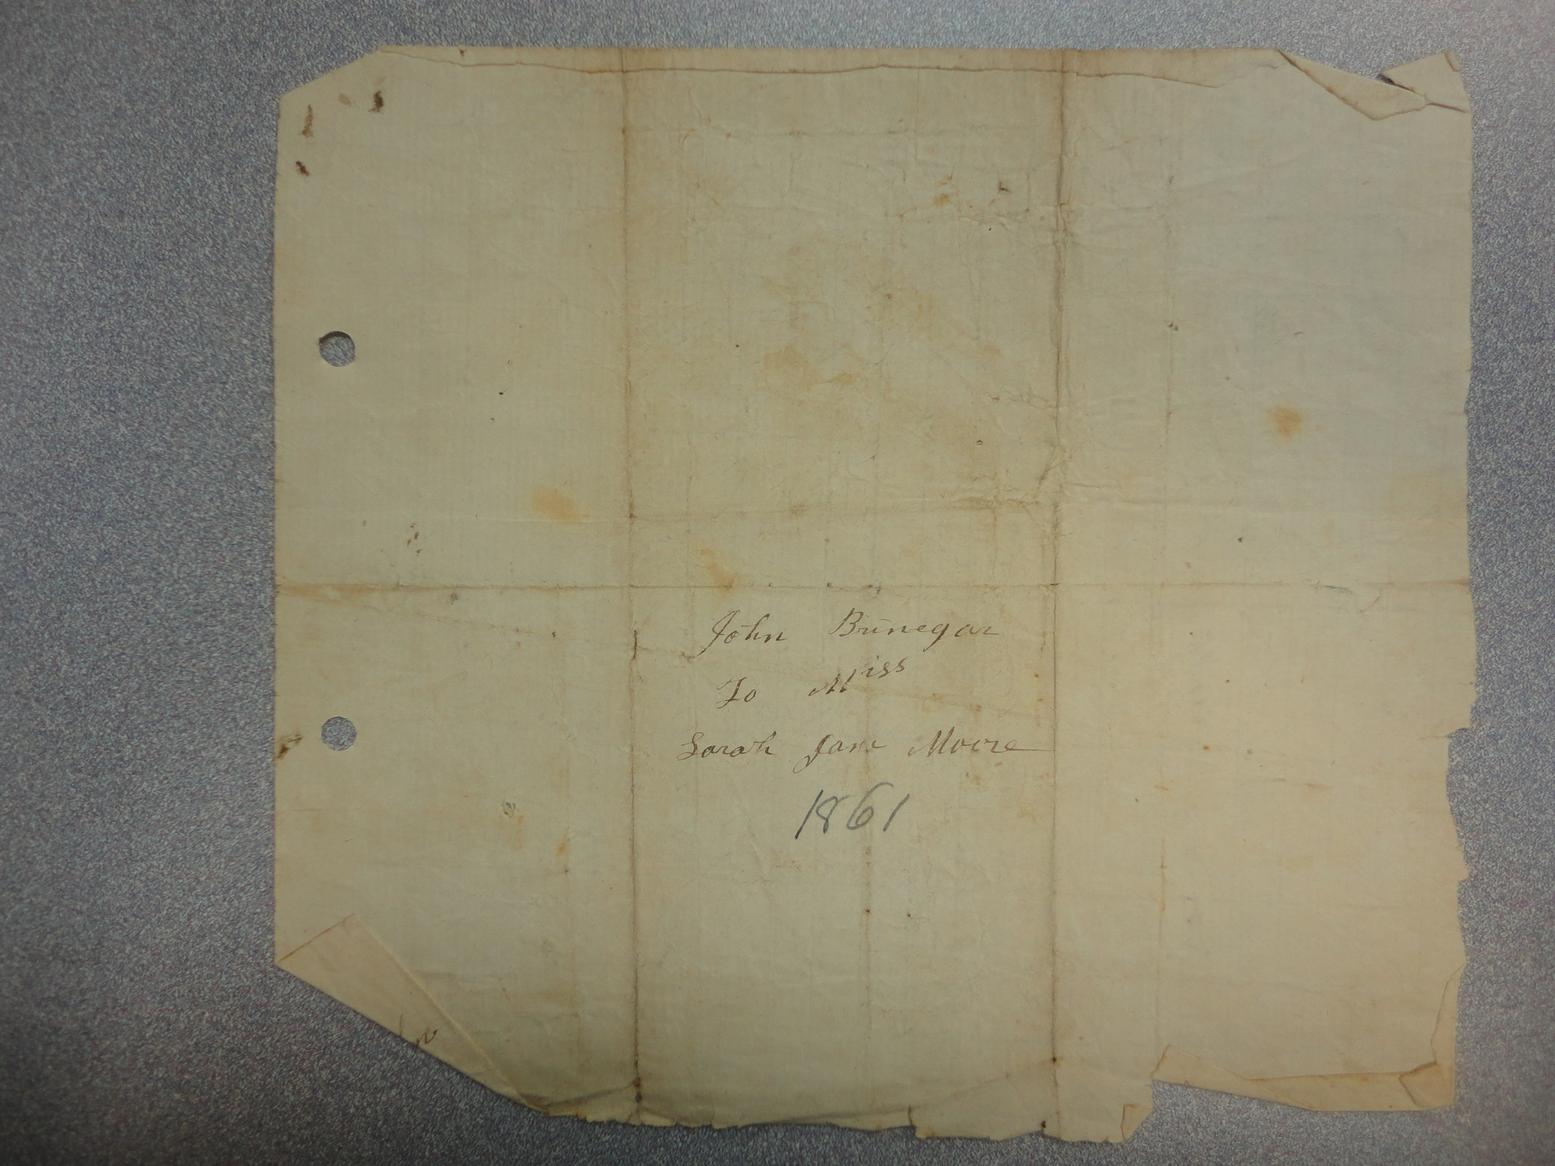 John Brunegar
To Miss
Sarah Jane Moore
1861